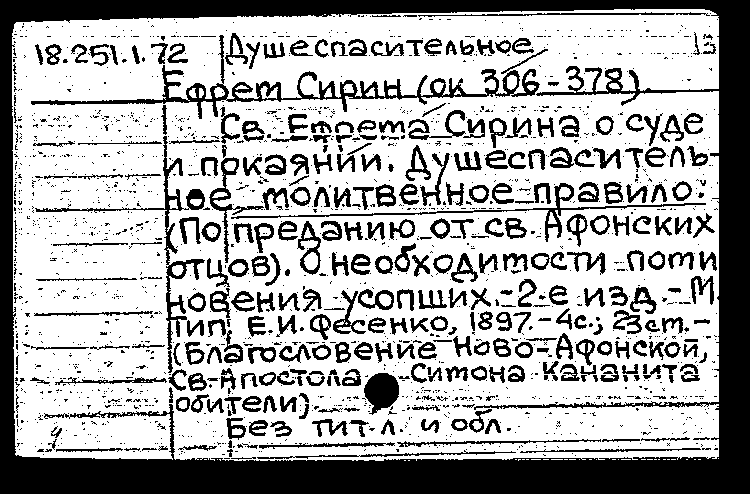 18.251.1.72 Душеспасительное 13
Ефрем Сирин (ок 306-378).
Св. Ефрема Сирина о суде
и покаянии. Душеспаситель-
ное молитвенное правило:
(По преданию от св. Афонских
отцов). О необходимости поми
новения усопших.-2-е изд.-М.
Тип. Е.И.Фесенко, 1897.-4с.; 23см.-
(Благословение Ново-Афонской,
Св-Апостола Симона Кананита
обители)
Без тит.л. и обл.